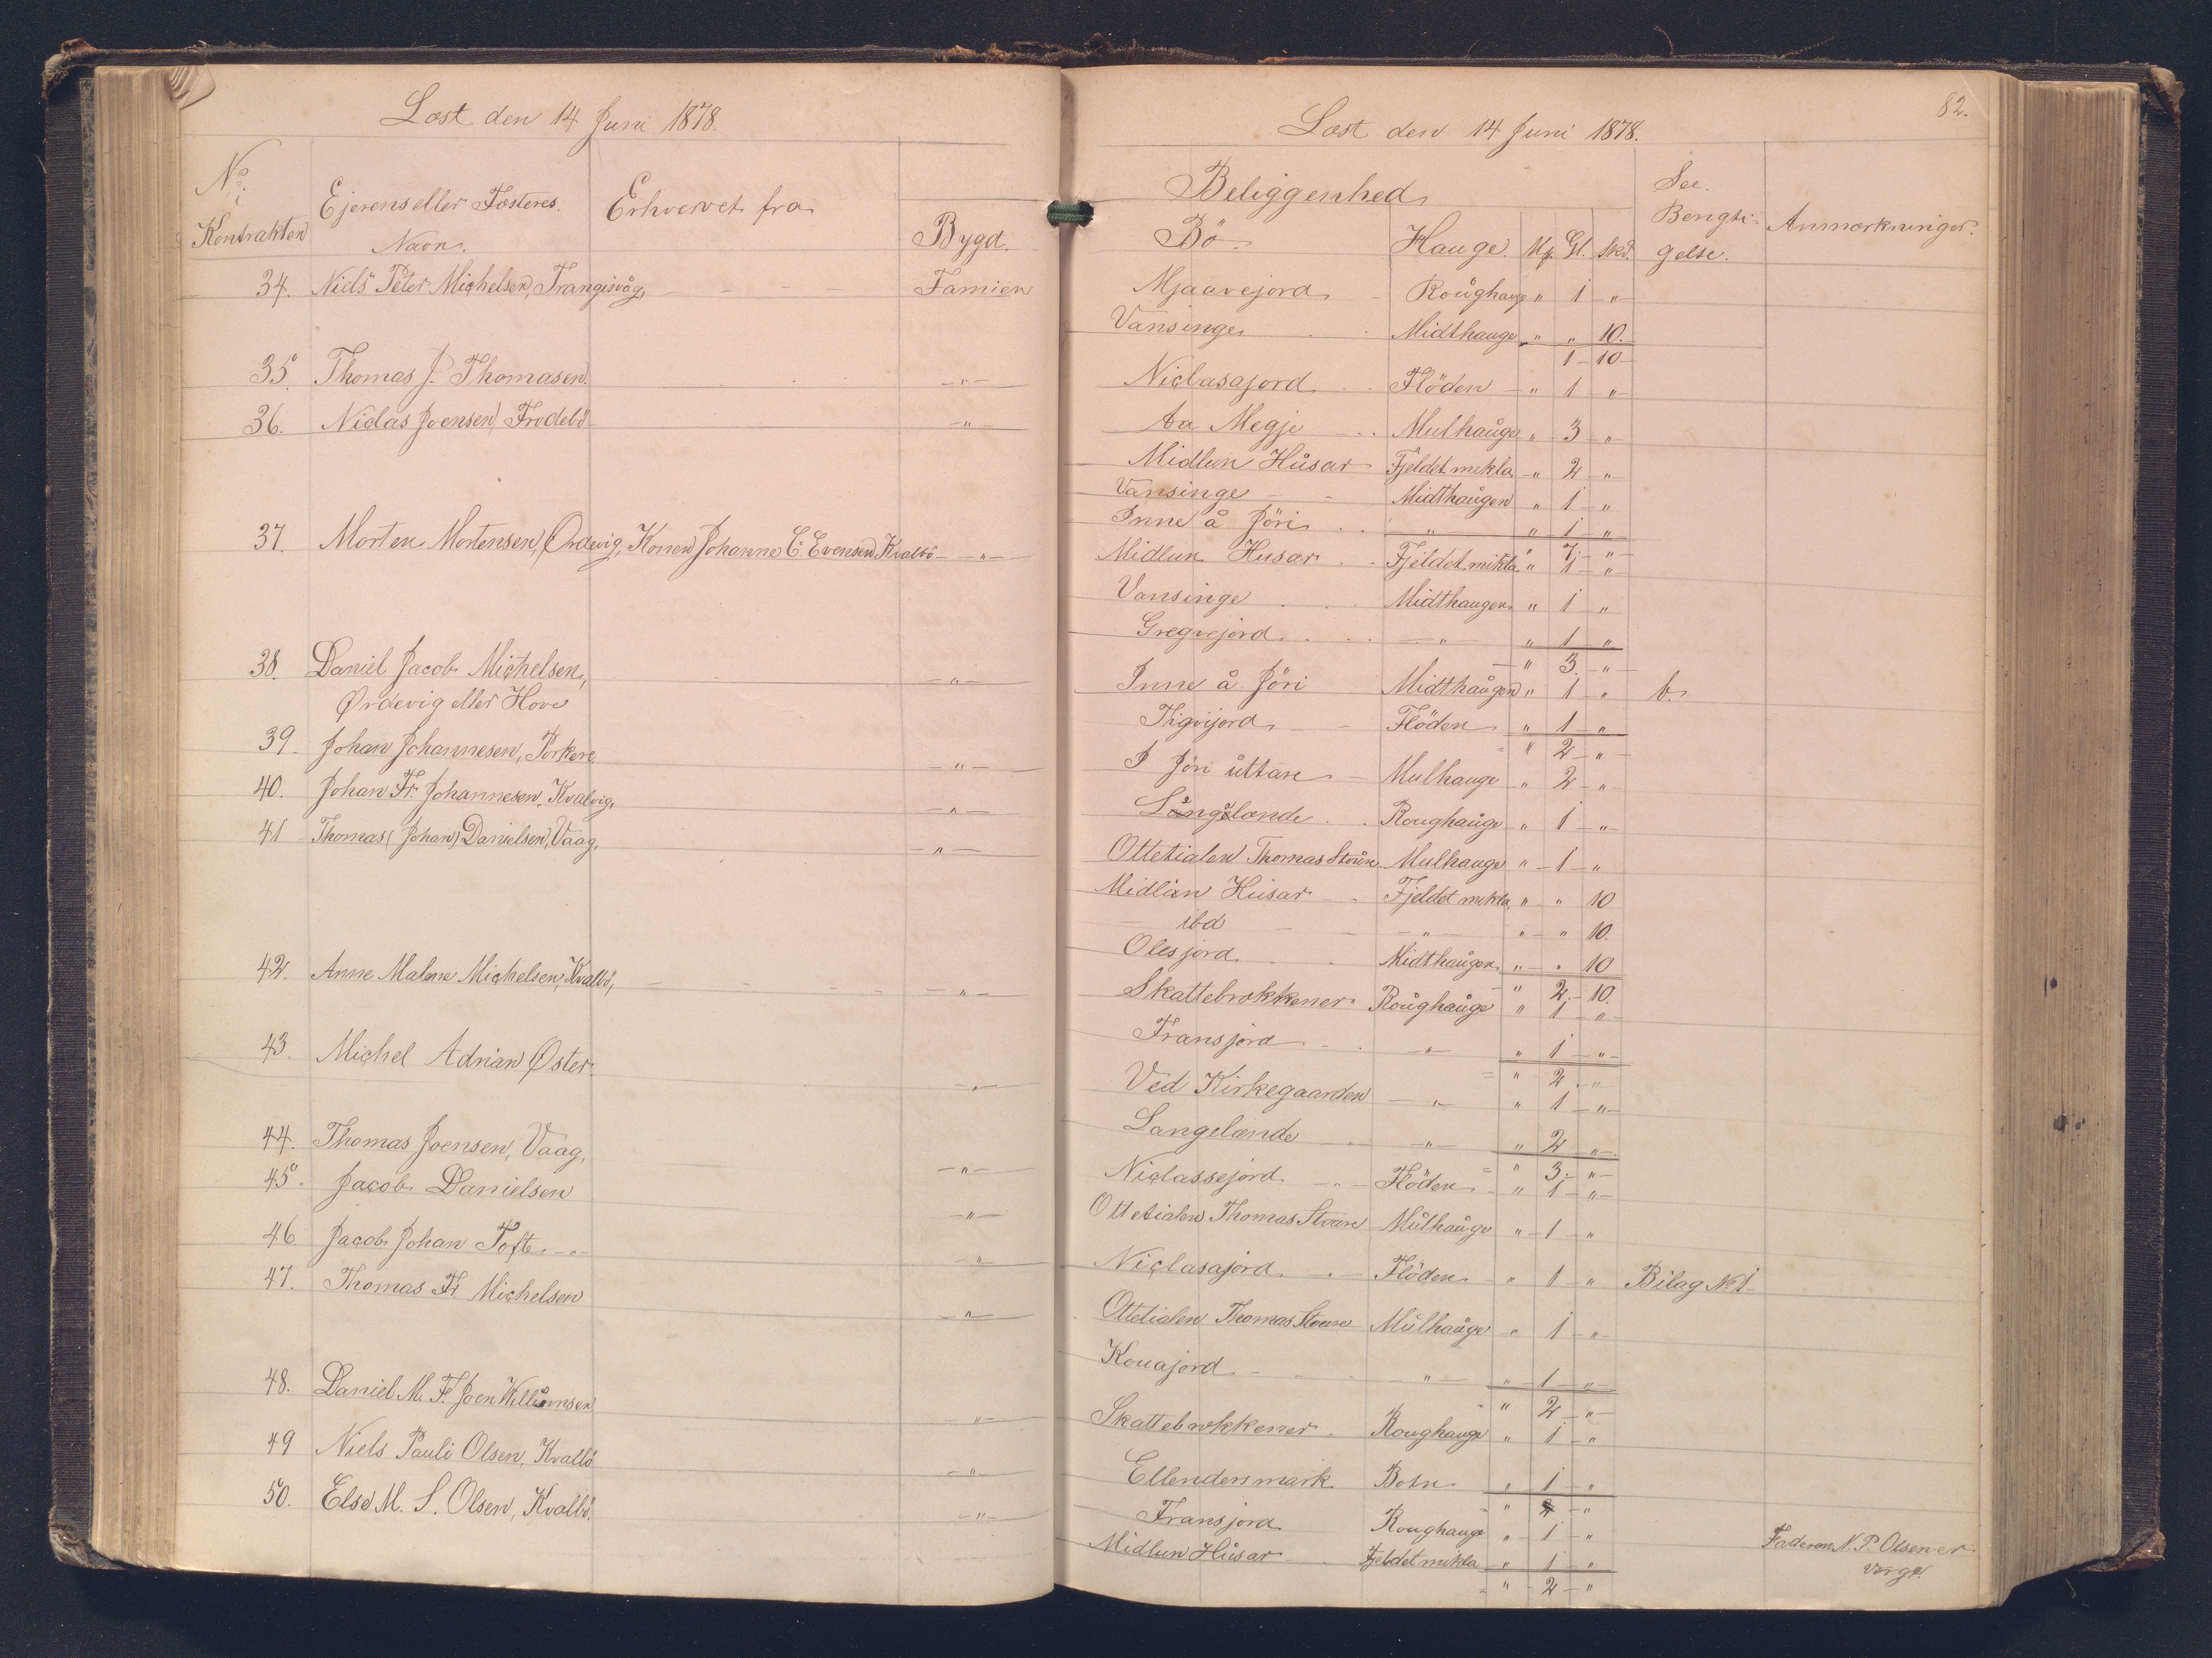 Læst den 14 Juni 1878.
No i Kontrakten
Ejerens eller Fæsteres Navn.
Erhvervet fra
Bygd.
34. Niels Peter Michelsen, Trangisvåg, Famien
35. Thomas J. Thomasen. -"-
36. Niclas Joensen, Frodebö -"-
37. Morten Mortensen, Ørdevig, Konen Johanne C. Evensen Kvalbö -"-
38. Daniel Jacob Michelsen, -"-
Ørdevig eller Hove
39. Johan Johannesen, Porkere -"-
40. Johan Fr. Johannesen, Kvalvig, -"-
41 Thomas (Johan) Danielsen, Vaag, -"-
42. Anne Malene Michelsen, Kvalbö, -"-
43. Michel Adrian Øster. -"-
44. Thomas Joensen, Vaag, -"-
45. Jacob Danielsen -"-
46. Jacob Johan Tofte -"- -"-
47. Thomas Fr. Michelsen -"-
48. Daniel M. F. Joen Williamsen -"-
49 Niels Pauli Olsen, Kvalbö -"-
50. Else M. S. Olsen, Kvalbö. -"-
82.
Læst den 14 Juni 1878.
Beliggenhed
Bö. Hauge. Mk. Gl. Skd.
See. Bengti-gelse.
Anmærkninger.
Mjaavejord Roughauge " 1 "
Vansinge Midthauge " " 10.
1 - 10
Niclasajord Flöden " 1 "
Aa Megje Mulhauge " 3 "
Midlun Húsar Fjeldet mikla " 2 "
Vansinge Midthaugen " 1 "
Inne å Jöri " " 1 "
" 7. "
Midlun Husar Fjeldet mikla " 1 "
Vansinge Midthaugen " 1 "
Gregvejord " " 1 "
" 3. "
Inne å Jöri Midthaugen " 1 " b.
Tigvijord Flöden " 1 "
= " 2 "
I Jöri úttare Mulhauge " 2 "
Langelænde Roughauge " 1 "
Ottetialen Thomas Stoún Mulhauge " 1 "
Midlun Húsar Fjeldet mikla " " 10
ibd " " " 10.
Olesjord Midthaugen " " 10
" 2. 10.
Skattebrokkener Roughauge " 1 "
Fransjord " " 1 "
= " 2 "
Ved Kirkegaarden " " 1 "
Langelænde " " 2 "
= " 3. "
Niclassejord Flöden " 1 "
Ottetialen Thomas Stoun Mulhauge " 1 "
Niclasajord Flöden " 1 " Bilag No 1
Ottetialen Thomas Stoun Mulhauge " 1 "
Kouajord " " 1 "
" 2 "
Skattebrokkener Roughauge " 1 "
Ellendersmark Botn " 1 "
= " 2 "
Fransjord Roughauge " 1 "
Midlun Húsar Fjeldet mikla " 1 "
= " 2 "
Faderen N. P. Olsen er
Værge.